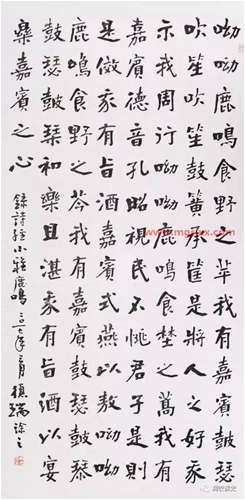 呦呦鹿鳴食野之苹我有嘉賓鼓瑟
吹笙吹笙鼓簧承筐是將人之好我
示我周行呦呦鹿鳴食埜之蒿我有
嘉賓德音孔昭視民不恌君子是則
是傚我有旨酒嘉賓式燕以敖呦呦
鹿鳴食野之芩我有嘉賓鼓瑟鼓琴
鼓瑟鼓琴和樂且湛我有旨酒以宴
樂嘉賓之心
錄詩經小雅鹿鳴